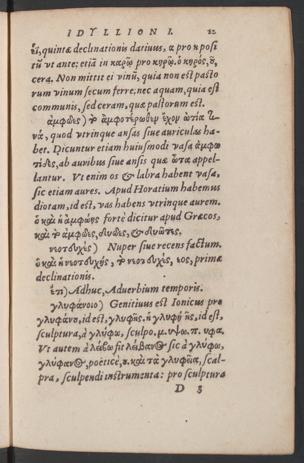 IDYLLION I. 22
εῖ, quintæ declinationis datiuus, α pro κ posi
tũ vt ante: etiã in καρῷ pro κηρῷ. ὁ κηρός, ȣ,
cera. Non mittit ei vinũ, quia non est pasto
rum vinum secum ferre: nec aquam, quia est
communis, sed ceram, quæ pastorum est.
ἀμφῶες) τὸ ἀμφοτέρωθεν ἔχον ὠτία τι-
νά, quod vtrinque ansas siue auriculas ha-
bet. Dicuntur etiam huiusmodi vasa ἀμφω
τίδες, ab auribus siue ansis quæ ὦτα appel-
lantur. Vt enim os & labra habent vasa,
sic etiam aures. Apud Horatium habemus
diotam, id est, vas habens vtrinque aurem.
ὁ καὶ ἡ ἀμφώης fortè dicitur apud Græcos,
καὶ τὸ ἀμφῶες, διωῶες, & διωῶτες.
νεοτευχὲς) Nuper siue recens factum.
ὁ καὶ ἡ νεοτευχής, τὸ νεοτευχές, εος, primæ
declinationis.
ἔτι) Adhuc, Aduerbium temporis.
γλυφάνοιο) Genitiuus est Ionicus pro
γλυφάνȣ, id est, γλυφῆς. ἡ γλυφὴ ῆς, id est,
sculptura, à γλύφω, sculpo, μ. υψω. π. υφα.
Vt autem à λείβω fit λείβανος sic à γλύφω,
γλύφανος, poëticè, ȣ. καὶ τὰ γλυφεῖα, scal-
pra, sculpendi instrumenta: pro sculptura
D 3